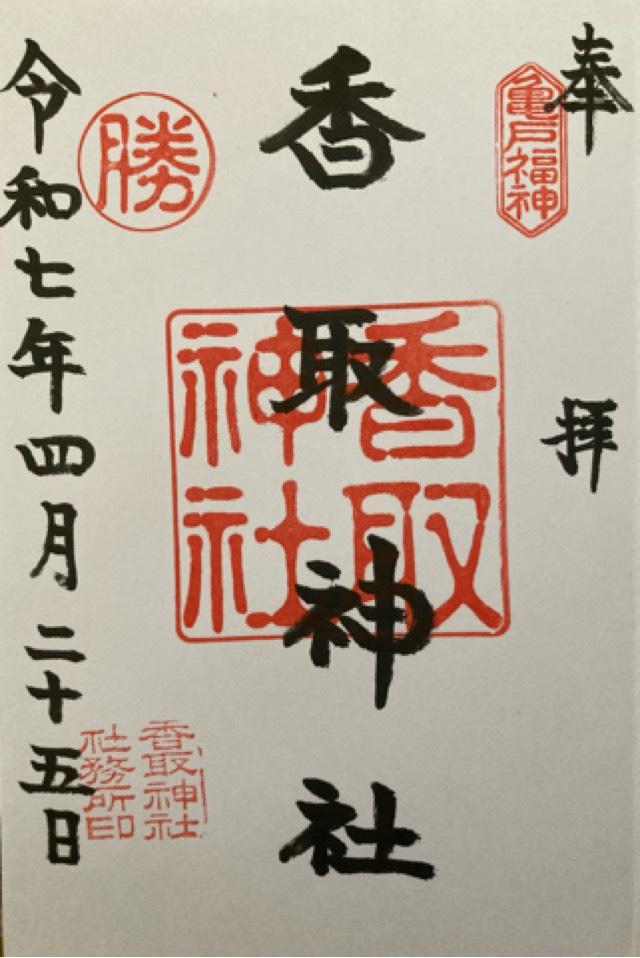 奉拝
亀戸福神
香取神社
香取神社
勝
令和七年四月二十五日
香取神社
社務所印